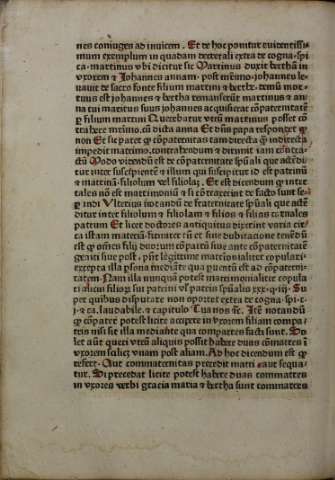 nes coniugeꝫ ad inuicem. Et de hoc ponitur euidentissi
mum exemplum in quadam decretali extra de cogna. spi
ca. martinus vbi dicitur sic Martinus duxit berthā in
vxorem ⁊ Johannes annam. post me͂mo. iohannes le
uauit de sacro fonte filium martini ⁊ berthe. demū mor
tuus est johannes ⁊ bertha remanserūt martinus ⁊ an
na tui maritus suus johannes acquisierat cōpaternitatē
ꝑ filium martini Querebatur vtrū martinus posset cō
trabere mr̄imo. cū dicta anna Et dn̄s papa respondet ꝙ
non Et sic patet ꝙ cōpaternitas tam directa ꝙ̄ indirecta
impedit matrimo. contrahendum ⁊ dirimit iam cōtra
ctū Modo videndū est de cōpaternitate sp̄uali que accidi
tur inter suscipientē ⁊ illum qui suscipitur id est patrinū
⁊ matrinā. filiolum vel filiolaꝫ. Et est dicendum ꝙ inter
tales nō est matrimoniū ⁊ si cōtraxerint de facto sunt se
ꝑandi Ulterius notandū de fraternitate sp̄uali que acci
ditur inter filiolum ⁊ filiolam ⁊ filios ⁊ filias carnales
patrum Et licet doctores antiquitus dixerint varia cir
ca istam materiā. finaliter tn̄ est sine dubitatione tenēdū
est ꝙ omnes filij duorum cōpatrū siue ante cōpaternitatē
geniti siue post. pn̄t legitime matrimonialiter copulari
excepta illa psona mediante qua ꝑuentū est ad cōpaterni
tatem. Nam illa nunquā potest matrimonialiter copula
ri alicui filioꝝ sui patrini vl̓ patrin sp̄ualis xxx. q. iij. Su
per quibus disputare non oportet extra de cogna. spi. c.
i. ⁊ ca. laudabile. ⁊ capitulo Tua nos ⁊c. Itē notandū
ꝙ cōpater potest licite accipere in vxorem filiam compa
tris nisi sit illa mediante qua compatres facti sunt. So
let aūt queri vtrū aliquis possit habere duas cōmatres ī
vxorem scilicꝫ vnam post aliam. Ad hoc dicendum est ꝙ
refert. Aut commaternitas precedit matri. aut sequa
tur. Si precedat licite potest habere duas commatres
in vxores verbi gracia maria ⁊ bertha sunt commatres